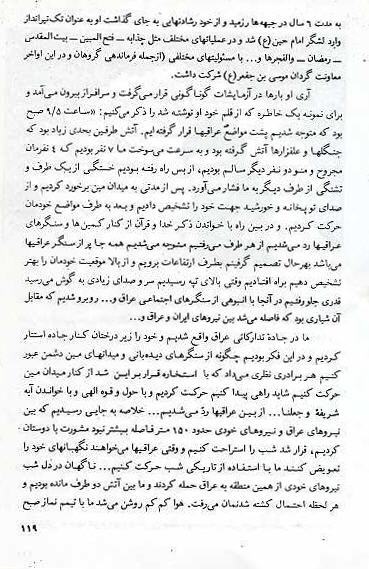 به مدت ۶ سال در جبهه‌ها رزمید و از خود رشادتهایی به جای گذاشت او به عنوان تک‌تیرانداز
وارد لشگر امام حسین(ع) شد و در عملیاتهای مختلف مثل چذابه ــ فتح‌المبین ــ بیت‌المقدس
ــ رمضان ــ والفجرها و... با مسئولیتهای مختلفی (ازجمله فرماندهی گروهان و در این اواخر
معاونت گردان موسی بن جعفر(ع) شرکت داشت.
آری او بارها در آزمایشات گوناگونی قرار می‌گرفت و سرافراز بیرون می‌آمد و
برای نمونه یک خاطره که از قلم خود او نوشته شد را ذکر می‌کنیم: «ساعت ۹/۵ صبح
بود که متوجه شدیم پشت مواضع عراقیها قرار گرفته‌ایم. آتش طرفین بحدی زیاد بود که
جنگلها و علفزارها آتش گرفته بود و به سرعت می‌سوخت ما ۷ نفر بودیم که ۴ نفرمان
مجروح و من و دو نفر دیگر سالم بودیم، از بس راه رفته بودیم خستگی از یک طرف و
تشنگی از طرف دیگر به ما فشار می‌آورد. پس از مدتی به میدان مین برخورد کردیم و از
صدای توپخانه و خورشید جهت خود را تشخیص دادیم و بعد به طرف مواضع خودمان
حرکت کردیم. و در بین راه با خواندن ذکر خدا و قرآن از کنار کمین‌ها و سنگرهای
عراقیها رد می‌شدیم از هر طرف می‌رفتیم متوجه می‌شدیم همه جا پر از سنگر عراقیها
می‌باشد بهرحال تصمیم گرفتیم بطرف ارتفاعات برویم و از بالا موقعیت خودمان را بهتر
تشخیص دهیم براه افتادیم وقتی بالای تپه رسیدیم سر و صدای زیادی به گوش می‌رسید
قدری جلو رفتیم در آنجا با انبوهی از سنگرهای اجتماعی عراق و... روبرو شدیم که مقابل
آن شیاری بود که فاصله می‌شد بین نیروهای ایران و عراق و...
ما در جادهٔ تدارکاتی عراق واقع شدیم و خود را زیر درختان کنار جاده استتار
کردیم و در این فکر بودیم چگونه از سنگرهای دیده‌بانی و میدانهای مین دشمن عبور
کنیم هر برادری نظری می‌داد که با استخاره قرار بر این شد از کنار میدان مین
حرکت کنیم شاید راهی پیدا کنیم حرکت کردیم و با حول و قوه الهی و با خواندن آیه
شریفهٔ و جعلنا... از بین عراقیها رد می‌شدیم... خلاصه به جایی رسیدیم که بین
نیروهای عراق و نیروهای خودی حدود ۱۵۰ متر فاصله بیشتر نبود مشورت با دوستان
کردیم، قرار شد شب را استراحت کنیم و وقتی عراقیها می‌خواهند نگهبانهای خود را
تعویض کنند ما با استفاده از تاریکی شب حرکت کنیم... ناگهان در دل شب
نیروهای خودی از همین منطقه به عراق حمله کردند و ما بین آتش دو طرف مانده بودیم و
هر لحظه احتمال کشته شدنمان می‌رفت. هوا کم کم روشن می‌شد ما با تیمم نماز صبح
۱۱۹